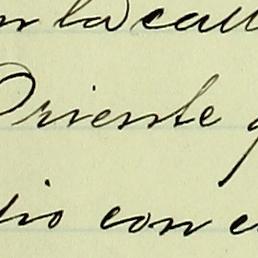 n la call
Oriente q
dio con e